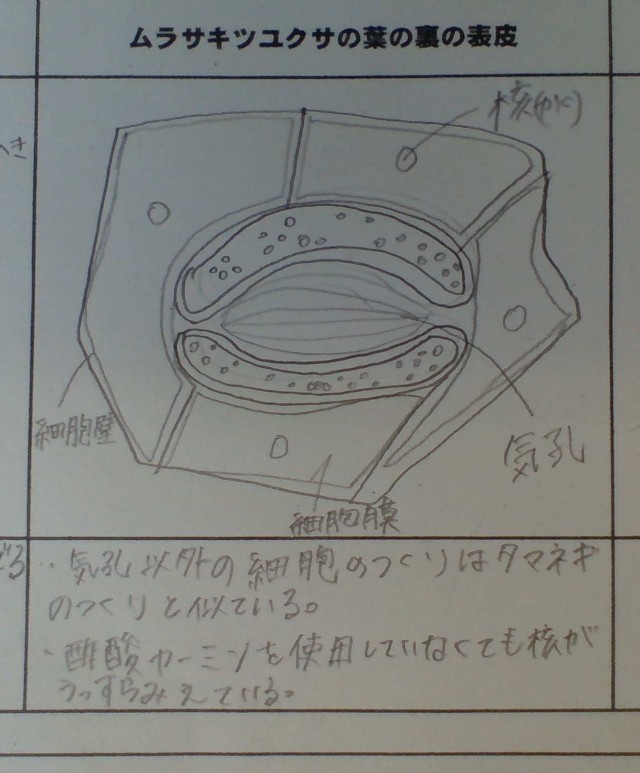 ムラサキツユクサの葉の裏の表皮
核(かく)
へき
細胞壁
気孔
細胞膜
・気孔以外の細胞のつくりはタマネギ
のつくりと似ている。
・酢酸カーミンを使用していなくても核が
うっすらみえている。